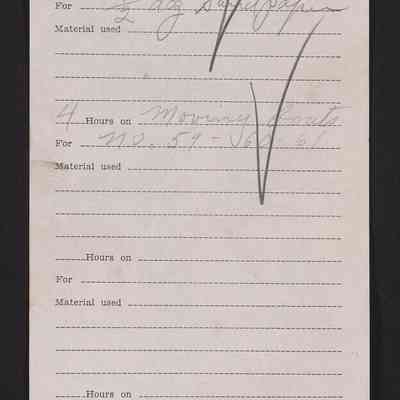 For ½ dz Sand Paper
Material used
4 Hours on Moving Boats
For No. 59 - 60 - 61
Material used
Hours on
For
Material used
Hours on